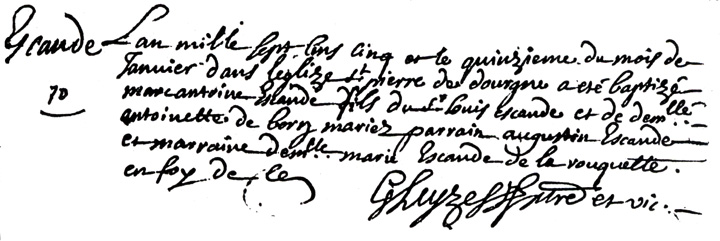 Escande
10
L'an mille sept cens cinq et le quinzieme du mois de
Janvier dans l'eglize st pierre de dourgne a eté baptizé
marc antoine Escande fils du sr louis escande et de demlle
antoinette de born mariez parrain augustin Escande
et marraine demlle marie Escande de la rouquette.
en foy de ce
ptre et vic.